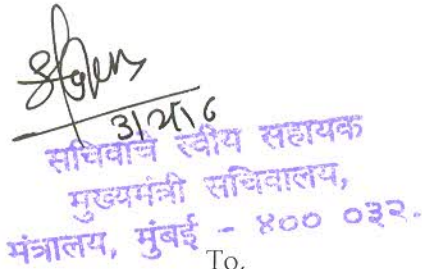 सचिवांचे स्वीय सहायक
मुख्यमंत्री सचिवालय,
मंत्रालय, मुंबई - ४०० ०३२.
To,